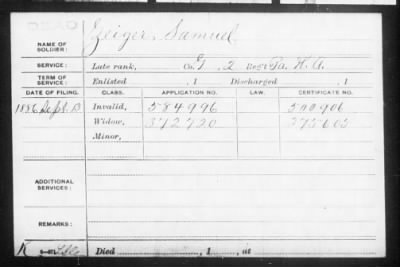 DEAD
NAME OF SOLDIER: Zeiger, Samuel
SERVICE: Late rank, Co. G, 2 Reg't Pa. H. A.
TERM OF SERVICE: Enlisted , 1 Discharged , 1
DATE OF FILING. CLASS. APPLICATION NO. LAW. CERTIFICATE NO.
1886 Sept. 13 Invalid, 584996 500906
Widow, 372720
Minor,
ADDITIONAL SERVICES:
REMARKS:
Died , 1 , at